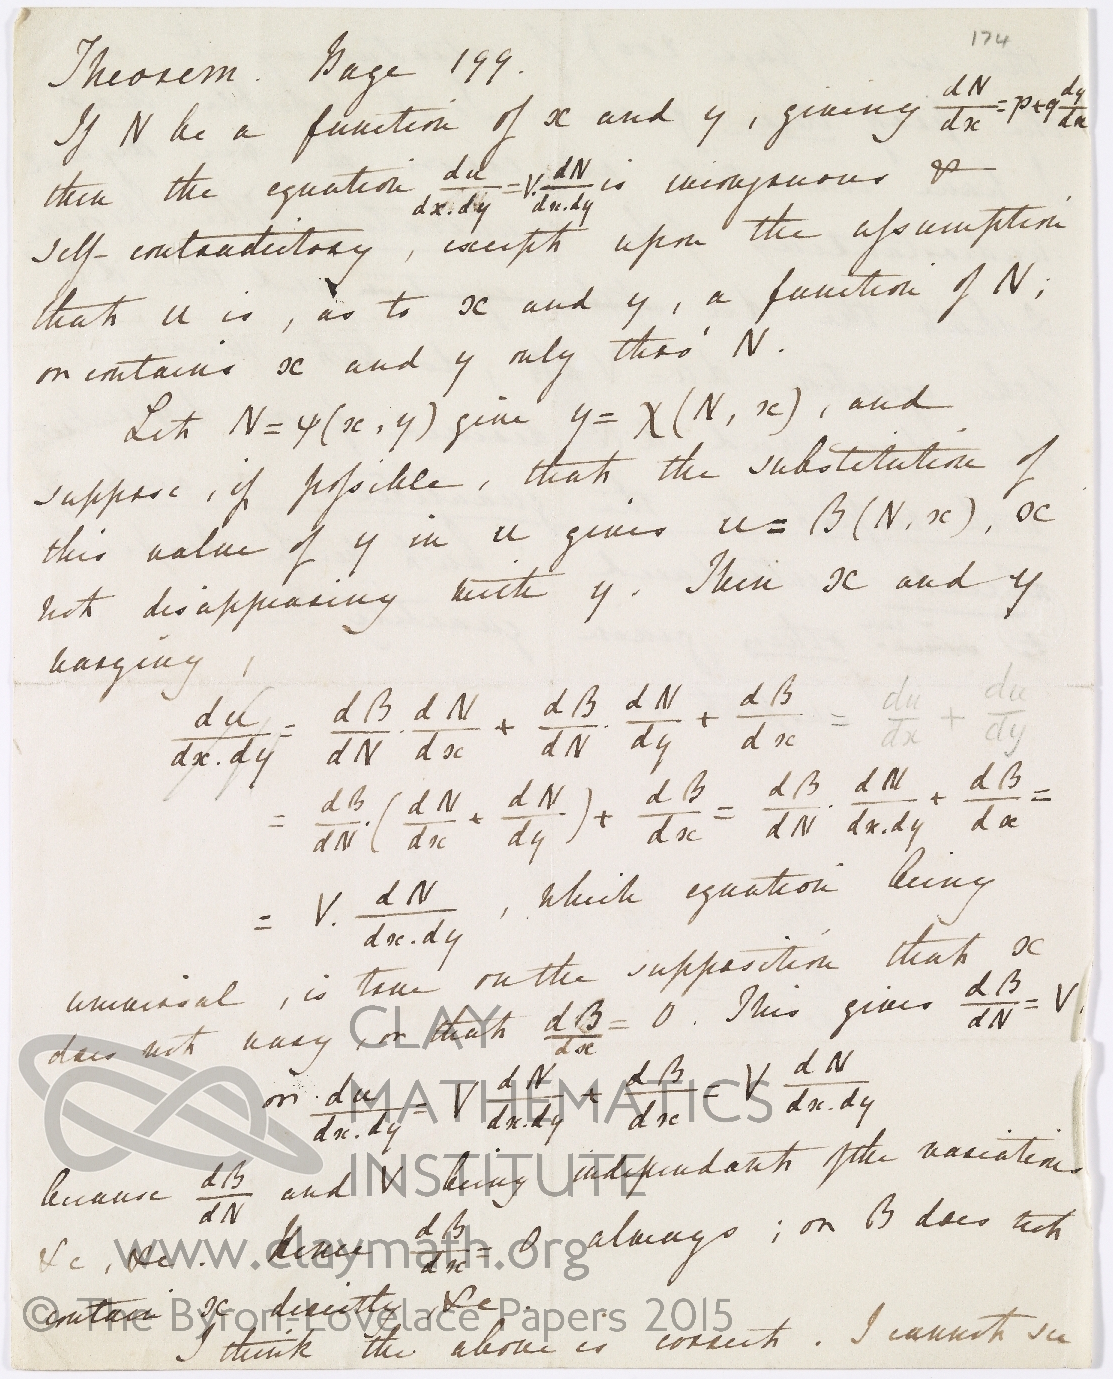 174
Theorem. Page 199.
If N be a function of x and y, giving dN/dx = p+q dy/dx
then the equation du/dx.dy = V. dN/dx.dy is incongruous &
self-contradictory, except upon the assumption
that u is, as to x and y, a function of N;
or contains x and y only thro' N.
Let N = ψ(x, y) give y = χ(N, x), and
suppose, if possible, that the substitution of
this value of y in u gives u = β(N, x), x
not disappearing with y. Then x and y
varying,
du/dx.dy = dβ/dN . dN/dx + dβ/dN . dN/dy + dβ/dx = du/dx + du/dy
= dβ/dN . (dN/dx + dN/dy) + dβ/dx = dβ/dN . dN/dx.dy + dβ/dx =
= V. dN/dx.dy, which equation being
universal, is true on the supposition that x
does not vary, or that dβ/dx = 0. This gives dβ/dN = V,
or du/dx.dy = V dN/dx.dy + dβ/dx = V dN/dx.dy
because dβ/dN and V being independant of the variations
&c, &c. Hence dβ/dx = 0 always; or β does not
contain x directly &c.
I think the above is correct. I cannot see
CLAY
MATHEMATICS
INSTITUTE
www.claymath.org
© The Byron-Lovelace Papers 2015